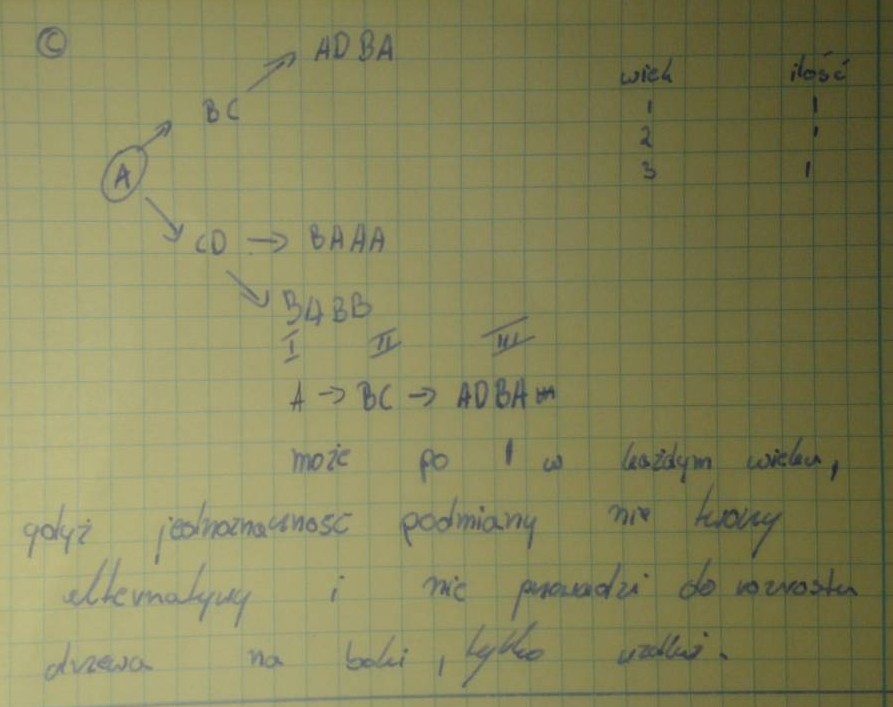 © ADBA
wiek ilość
BC
1 1
2 1
A
3 1
CD → BAAA
BABB
I II III
A → BC → ADBA
może po 1 w każdym wieku,
gdyż jednoznaczność podmiany nie tworzy
alternatywy i nie prowadzi do rozrostu
drzewa na boki, tylko wzdłuż.